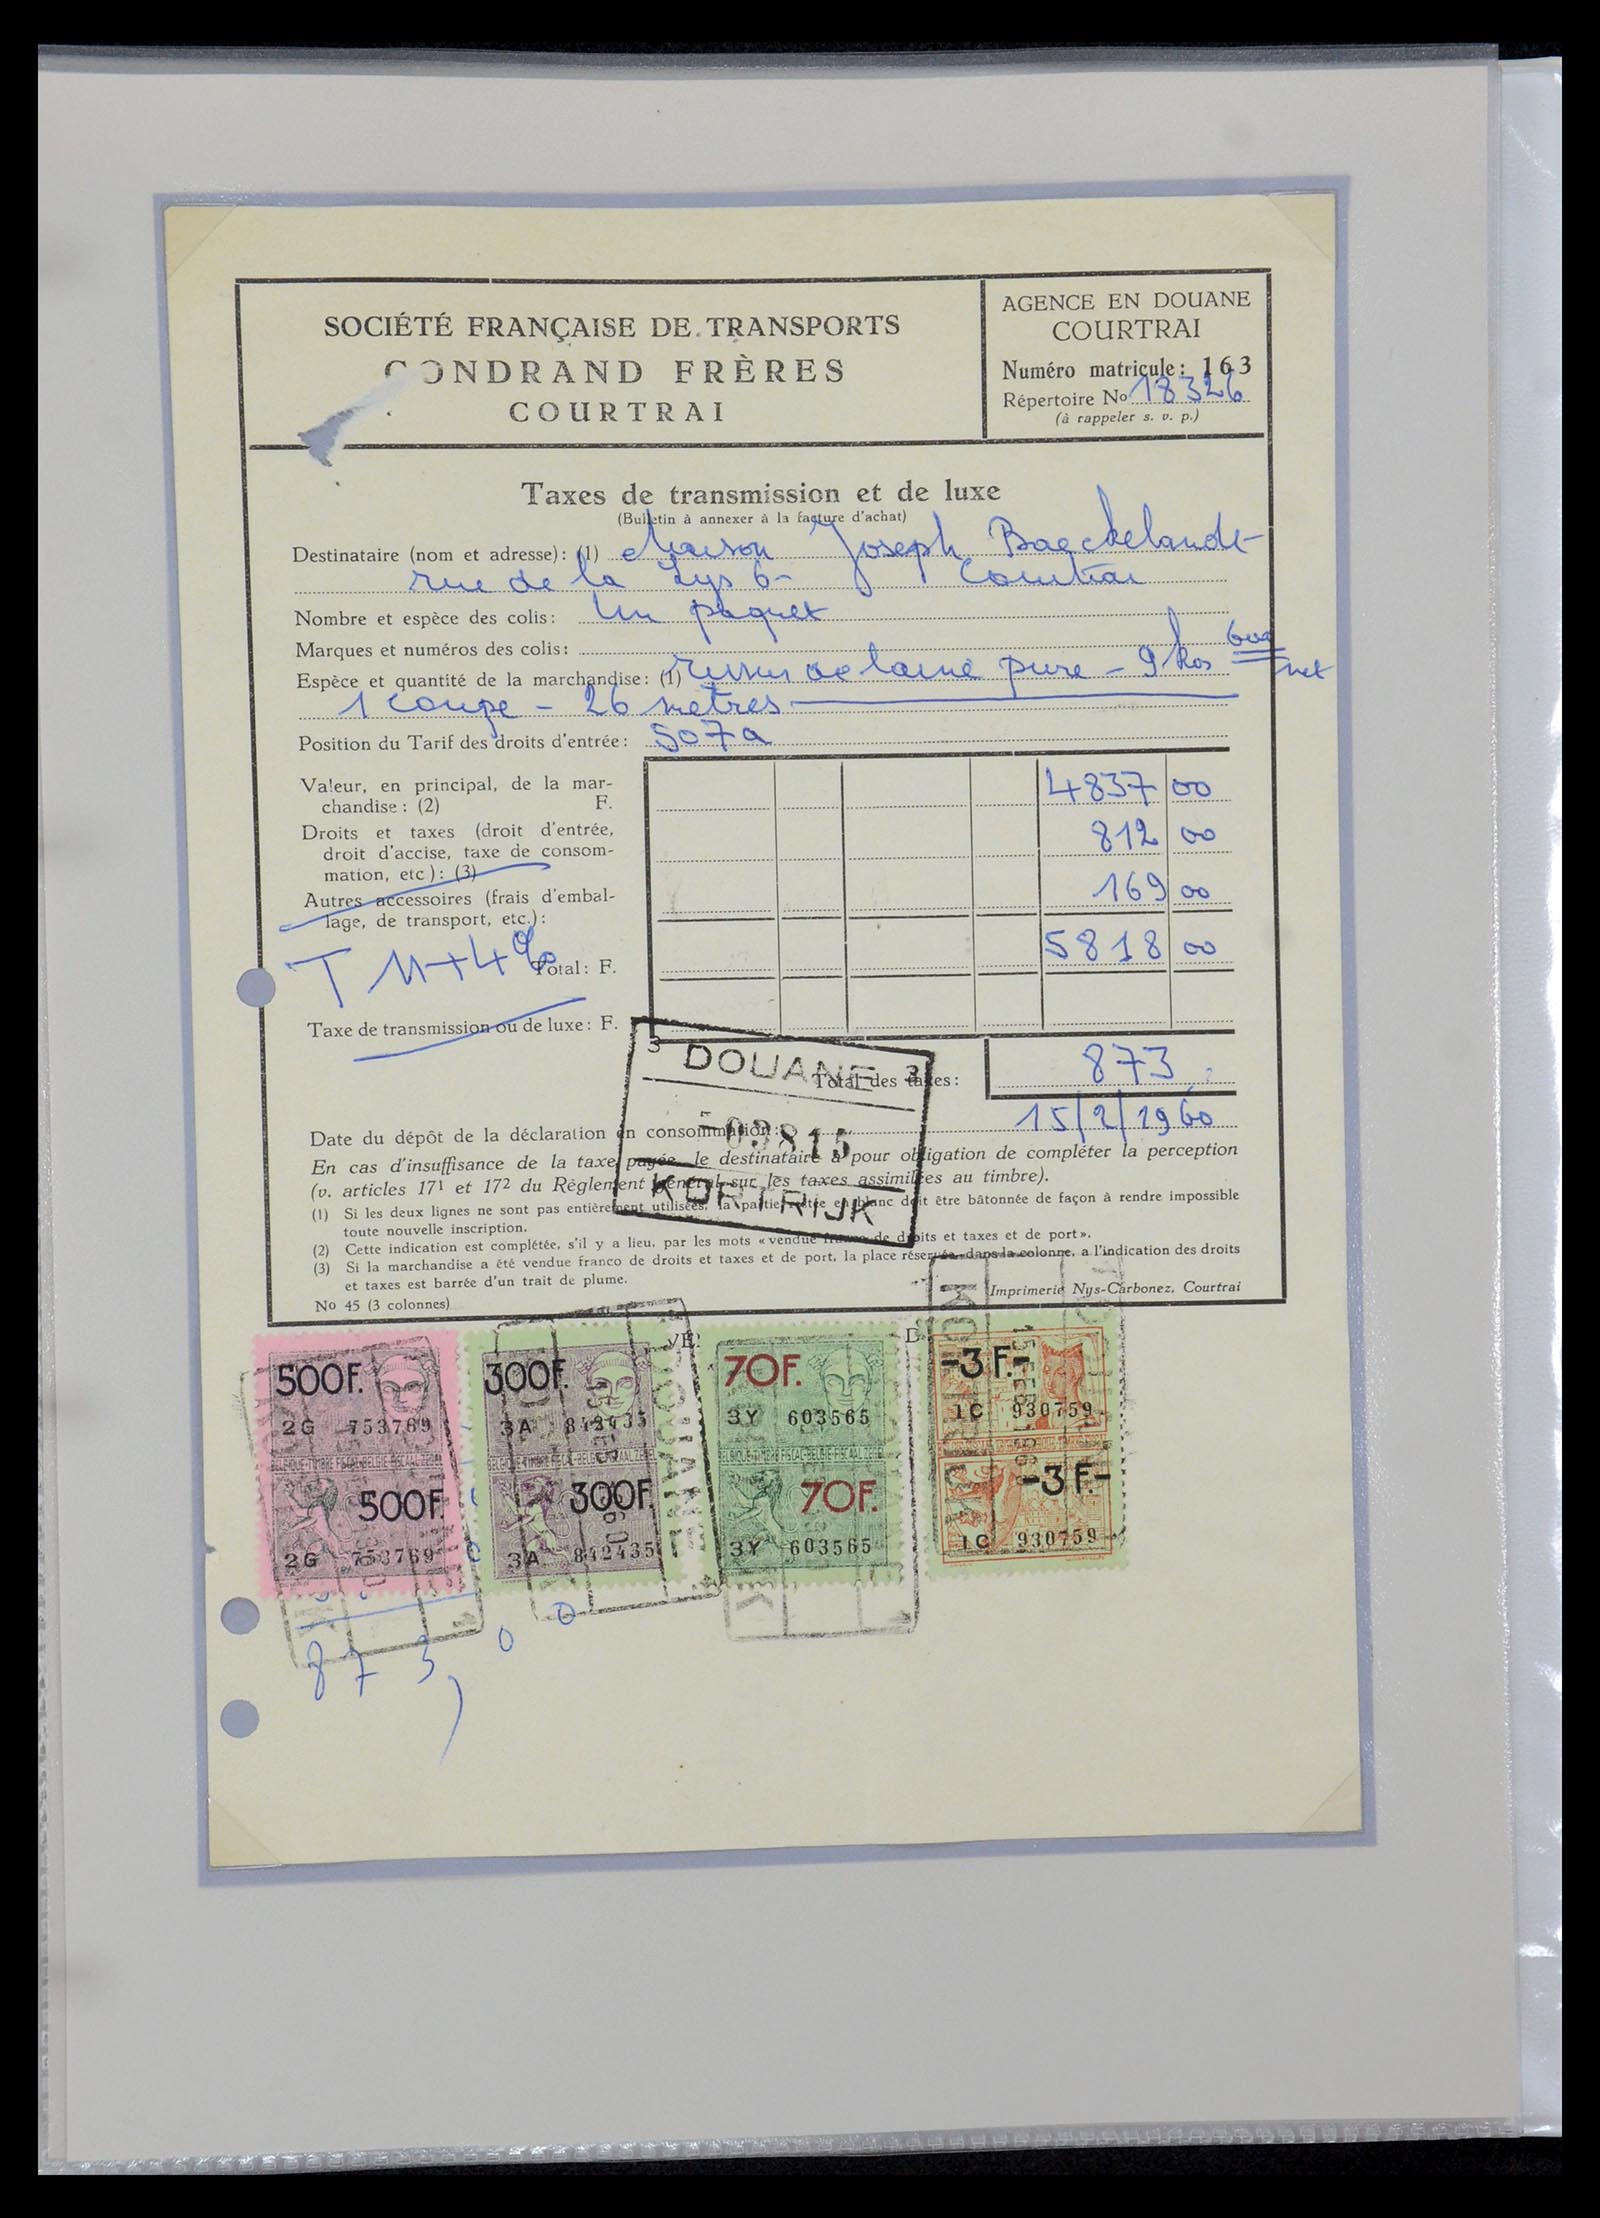 SOCIÉTÉ FRANÇAISE DE TRANSPORTS
CONDRAND FRÈRES
COURTRAI
AGENCE EN DOUANE
COURTRAI
Numéro matricule: 163
Répertoire No 18326
(à rappeler s. v. p.)
Taxes de transmission et de luxe
(Bulletin à annexer à la facture d'achat)
Destinataire (nom et adresse): (1) Maison Joseph Baeckelandt
rue de la Lys 6 - Courtrai
Nombre et espèce des colis: Un paquet
Marques et numéros des colis:
Espèce et quantité de la marchandise: (1) tissus de laine pure - 9 kos 600 net
1 coupe - 26 metres
Position du Tarif des droits d'entrée: 507a
Valeur, en principal, de la mar-
chandise: (2) F. 4837 00
Droits et taxes (droit d'entrée,
droit d'accise, taxe de consom-
mation, etc): (3) 812 00
Autres accessoires (frais d'embal-
lage, de transport, etc.): 169 00
Total: F. 5818 00
Taxe de transmission ou de luxe: F.
Total des taxes: 873
15/2/1960
Date du dépôt de la déclaration en consommation:
En cas d'insuffisance de la taxe payée, le destinataire a pour obligation de compléter la perception
(v. articles 17¹ et 17² du Règlement Général sur les taxes assimilées au timbre).
(1) Si les deux lignes ne sont pas entièrement utilisées, la partie restée en blanc doit être bâtonnée de façon à rendre impossible
toute nouvelle inscription.
(2) Cette indication est complétée, s'il y a lieu, par les mots «vendue franco de droits et taxes et de port».
(3) Si la marchandise a été vendue franco de droits et taxes et de port, la place réservée dans la colonne, a l'indication des droits
et taxes est barrée d'un trait de plume.
No 45 (3 colonnes)
Imprimerie Nys-Carbonez, Courtrai
3 DOUANE 3
KORTRIJK
500F.
2G 753769
500F.
2G 753769
300F.
3A 842435
300F.
3A 842435
70F.
3Y 603565
70F.
3Y 603565
-3F.-
1C 930759
-3F.-
1C 930759
873,00